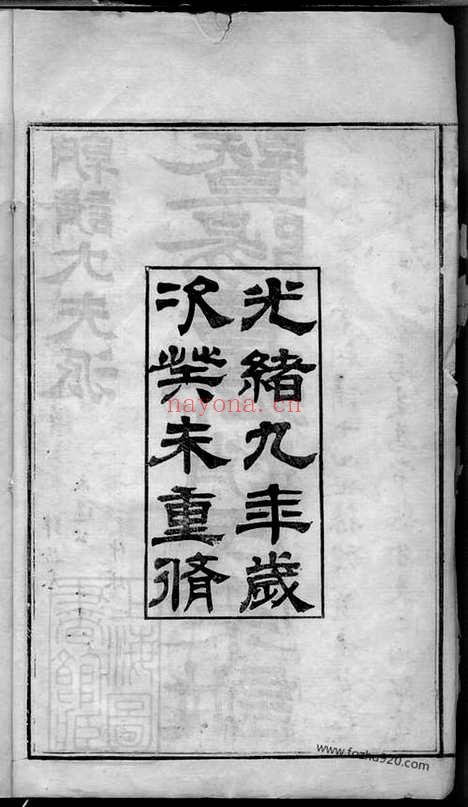 光緒九年歲
次癸未重脩
nayona.cn
www.fozhu920.com